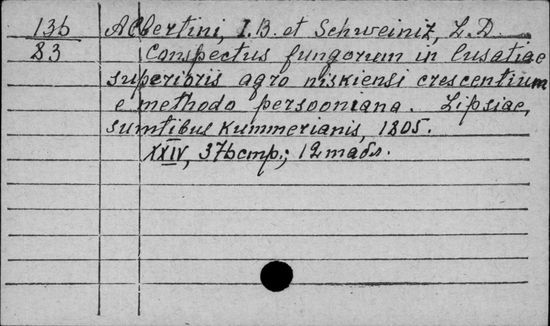 136 Albertini, I.B. et Schweiniz, L.D.
83 Conspectus fungorum in Lusatiae
superioris agro niskiensi crescentium
e methodo persooniana. Lipsiae,
sumtibus Kummerianis, 1805.
XXIV, 376 стр.; 12 табл.